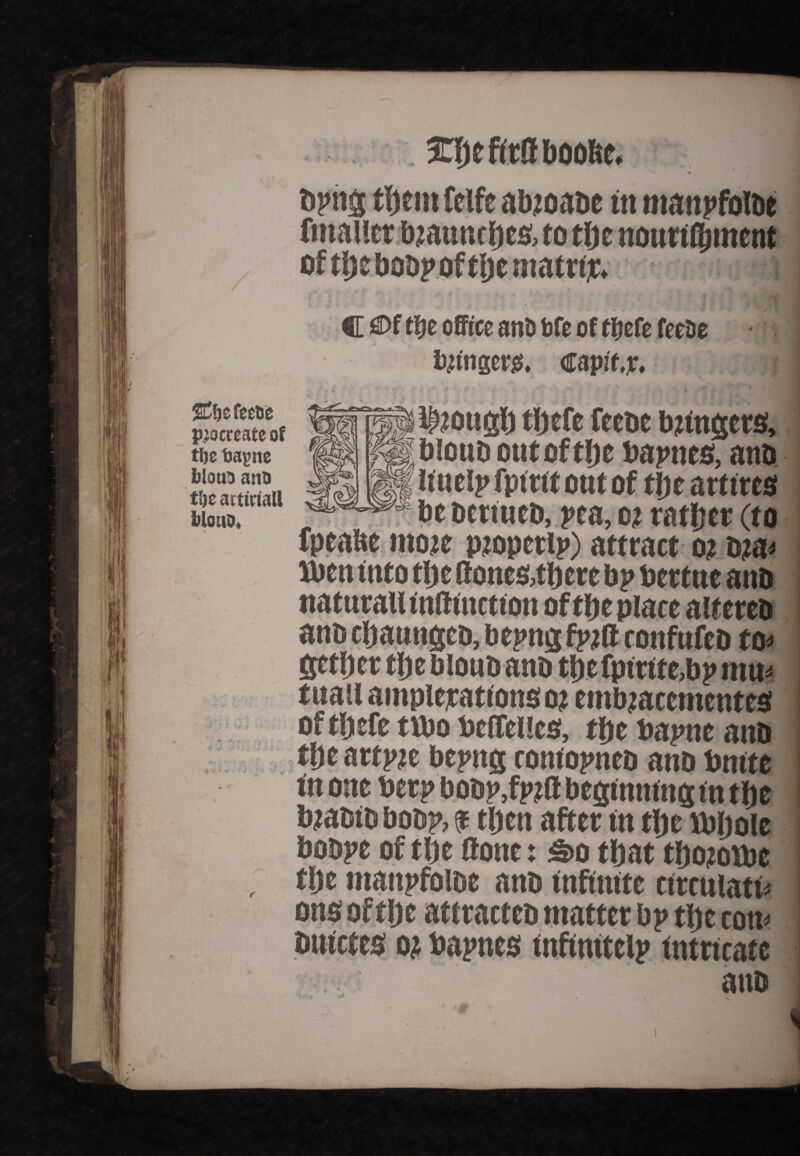 The first booke.
dyng them selfe abroade in manyfolde
smaller braunches, to the nourishment
of the body of the matrix.
C Of the office and vse of these seede
bringers. Capit.x.
The seede
procreate of
the vayne
bloud and
the artiriall
bloud.
THrough these seede bringers,
bloud out of the vaynes, and
liuely spirit out of the artires
be deriued, yea, or rather (to
speake more properly) attract or dra-
wen into the stones, there by vertue and
naturall instinction of the place altered
and chaunged, beyng fyrst confused to-
gether the bloud and the spirite, by mu-
tuall amplexations or embracementes
of these two vesselles, the vayne and
the artyre beyng conioyned and vnite
in one very body, fyrst beginning in the
bradid body, & then after in the whole
bodye of the stone: So that thorowe
the manyfolde and infinite circulati-
ons of the attracted matter by the con-
duictes or vaynes infinitely intricate
and